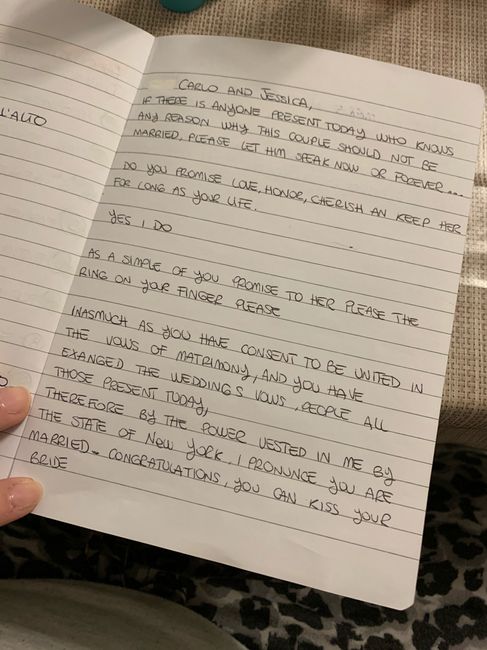 L'AUTO
CARLO AND JESSICA,
IF THERE IS ANYONE PRESENT TODAY WHO KNOWS
ANY REASON WHY THIS COUPLE SHOULD NOT BE
MARRIED, PLEASE LET HIM SPEAK NOW OR FOREVER...
DO YOU PROMISE LOVE, HONOR, CHERISH AN KEEP HER
FOR LONG AS YOUR LIFE.
YES I DO
AS A SIMPLE OF YOU PROMISE TO HER PLEASE THE
RING ON YOUR FINGER PLEASE
INASMUCH AS YOU HAVE CONSENT TO BE UNITED IN
THE VOWS OF MATRIMONY, AND YOU HAVE
EXANGED THE WEDDINGS VOWS, PEOPLE ALL
THOSE PRESENT TODAY,
THEREFORE BY THE POWER VESTED IN ME BY
THE STATE OF NEW YORK. I PRONUNCE YOU ARE
MARRIED. CONGRATULATIONS, YOU CAN KISS YOUR
BRIDE